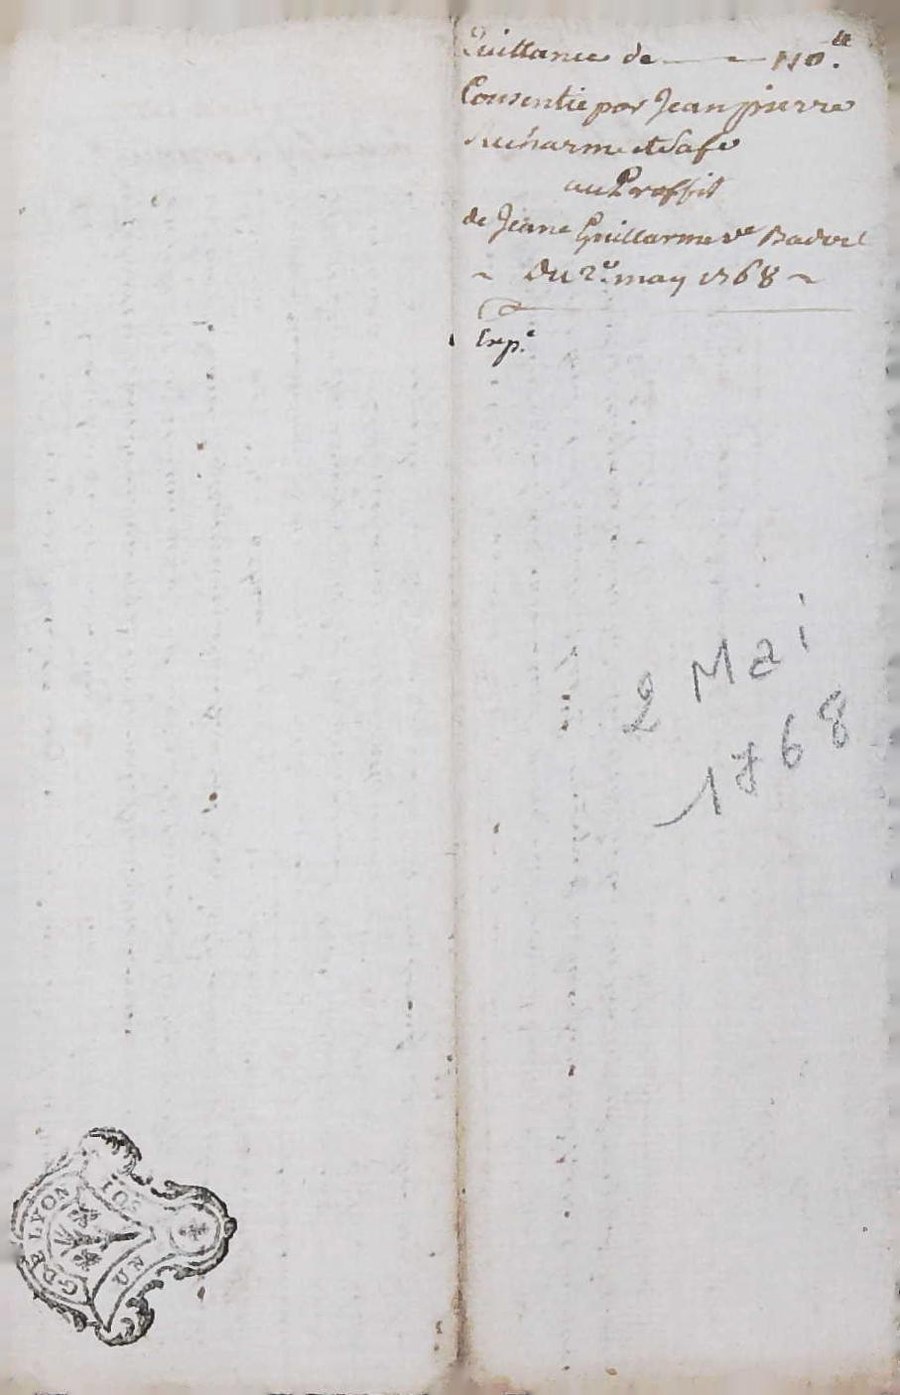 Quittance de — — 110.ᵗᵗ
Consentie par Jean pierre
Ducharme et Safe
au Proffit
de Jeane Guillarme vᵉ Badoil
~ Du 2.ᵉ may 1768 ~
Exp.ᵉ
2 Mai
1768
G DE LYON
UN